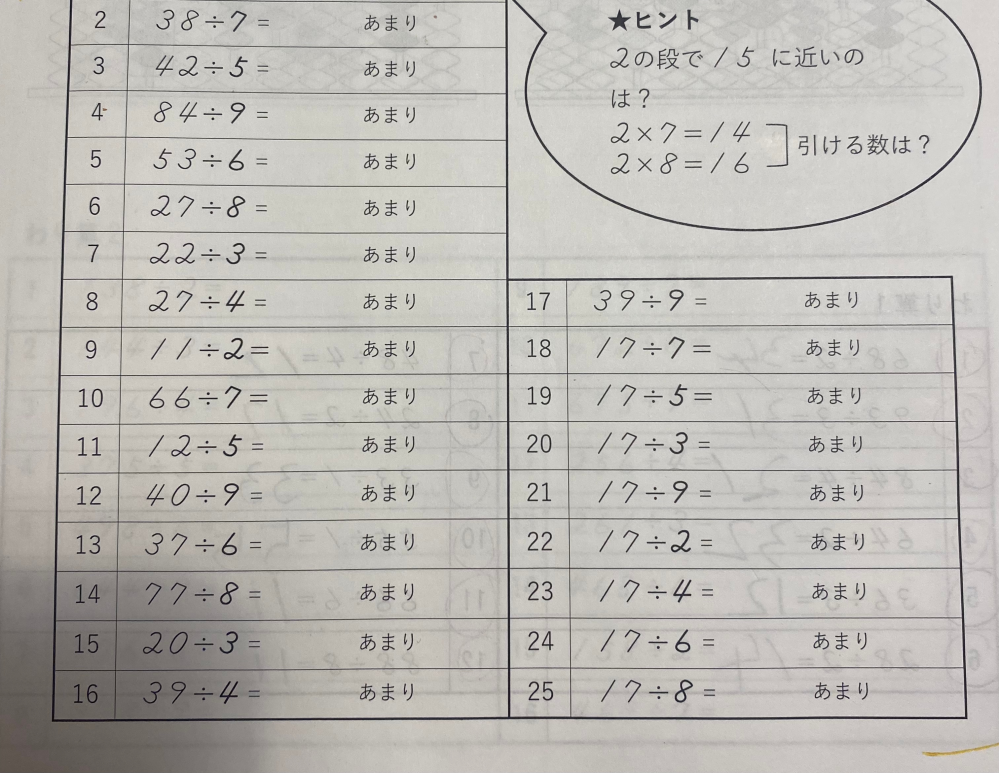 2 38÷7= あまり
3 42÷5= あまり
4 84÷9= あまり
5 53÷6= あまり
6 27÷8= あまり
7 22÷3= あまり
8 27÷4= あまり
9 11÷2= あまり
10 66÷7= あまり
11 12÷5= あまり
12 40÷9= あまり
13 37÷6= あまり
14 77÷8= あまり
15 20÷3= あまり
16 39÷4= あまり
★ヒント
2の段で15に近いの
は?
2×7=14
2×8=16
引ける数は?
17 39÷9= あまり
18 17÷7= あまり
19 17÷5= あまり
20 17÷3= あまり
21 17÷9= あまり
22 17÷2= あまり
23 17÷4= あまり
24 17÷6= あまり
25 17÷8= あまり